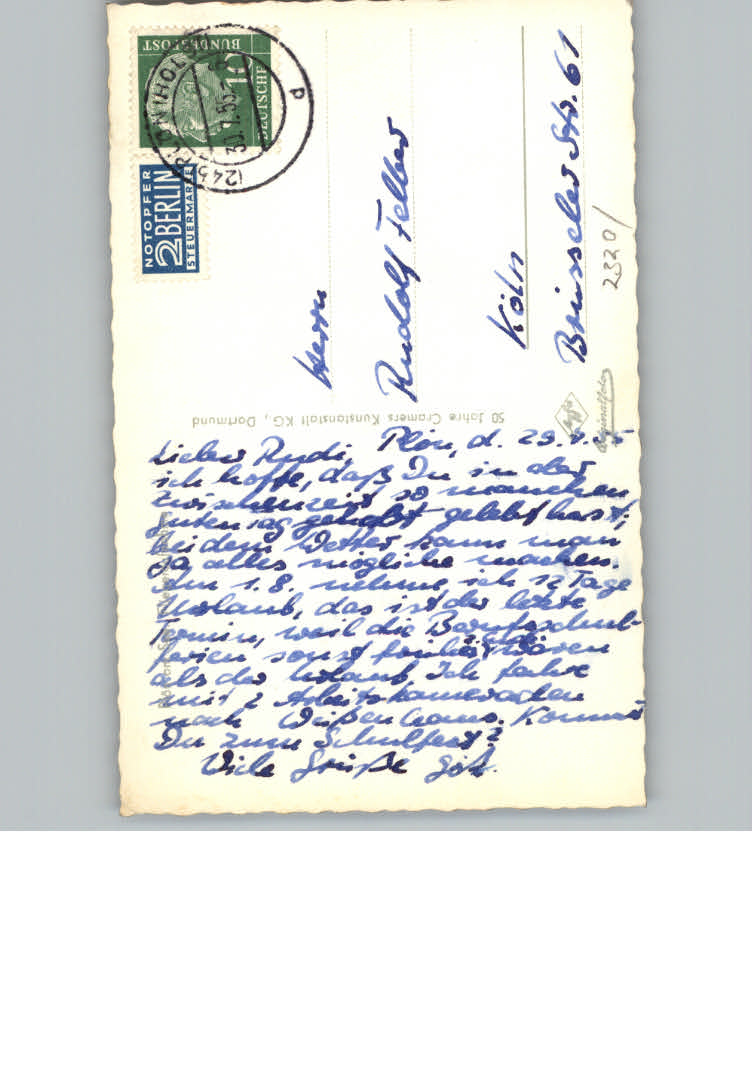 Plön, d. 29.7.55
Lieber Rudi,
ich hoffe, daß Du in der
Zwischenzeit so manchen
guten Tag gelebt hast,
bei dem Wetter kann man
ja alles mögliche machen.
Am 1.8. nehme ich 12 Tage
Urlaub, das ist der letzte
Termin, weil die Berufsschul-
ferien sonst früher wären
als der Urlaub. Ich fahre
mit 2 Arbeitskameraden
nach Weißenhaus. Kommst
Du zum Schulfest?
Viele Grüße
Herrn
Rudolf Felber
Köln
Brüsseler Str. 61
2320/
50 Jahre Cramers Kunstanstalt KG., Dortmund
Agfa
Originalfoto
DEUTSCHE
BUNDESPOST
10
NOTOPFER
2 BERLIN
STEUERMARKE
(24b) PLÖN (HOLST
30.7.55